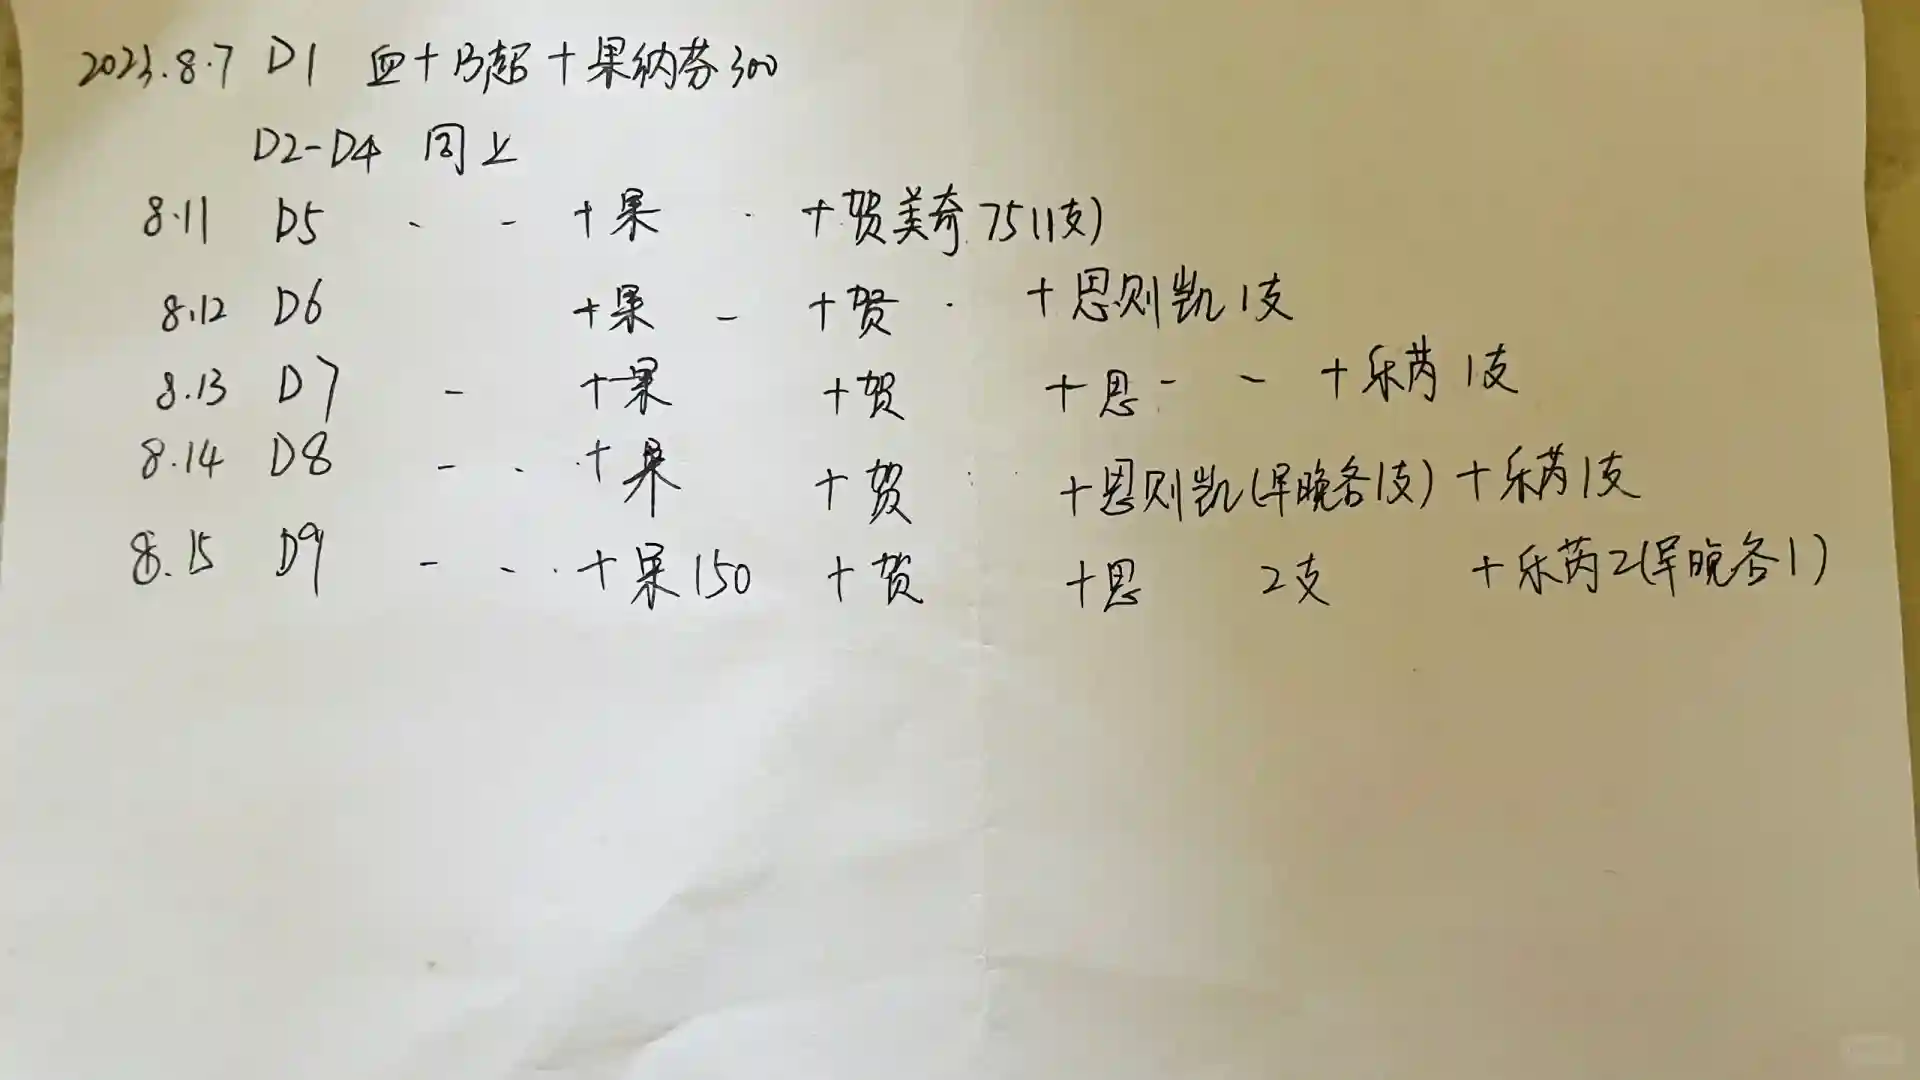 2023.8.7 D1 血+B超+果纳芬300
D2-D4 同上
8.11 D5 - - +果 +贺美奇 75(1支)
8.12 D6 +果 - +贺 +思则凯1支
8.13 D7 - +果 +贺 +思 - - +乐芮 1支
8.14 D8 - - +果 +贺 +思则凯(早晚各1支) +乐芮1支
8.15 D9 - - +果150 +贺 +思 2支 +乐芮2(早晚各1)